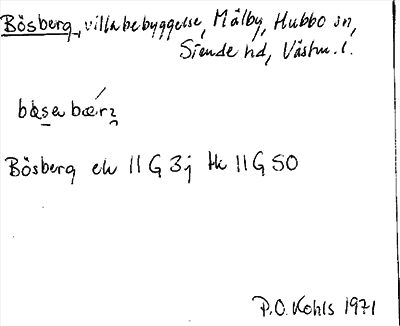 Bösberg, villabebyggelse, Målby, Hubbo sn,
Siende hd, Västm. l.
Bösberg ek 11 G 3j tk 11 G SO
P.O. Kohls 1971